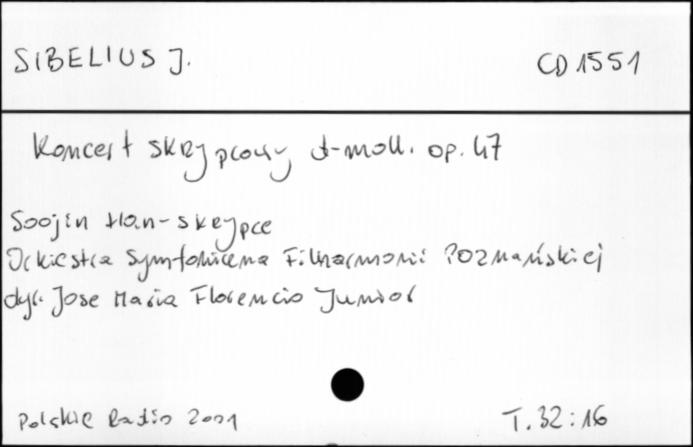 SIBELIUS J.
CD 1551
Koncert skrzypcowy d-moll. op. 47
Soojin Han - skrzypce
Orkiestra Symfoniczna Filharmonii Poznańskiej
dyr. Jose Maria Florencio Junior
Polskie Radio 2001
T. 32:16